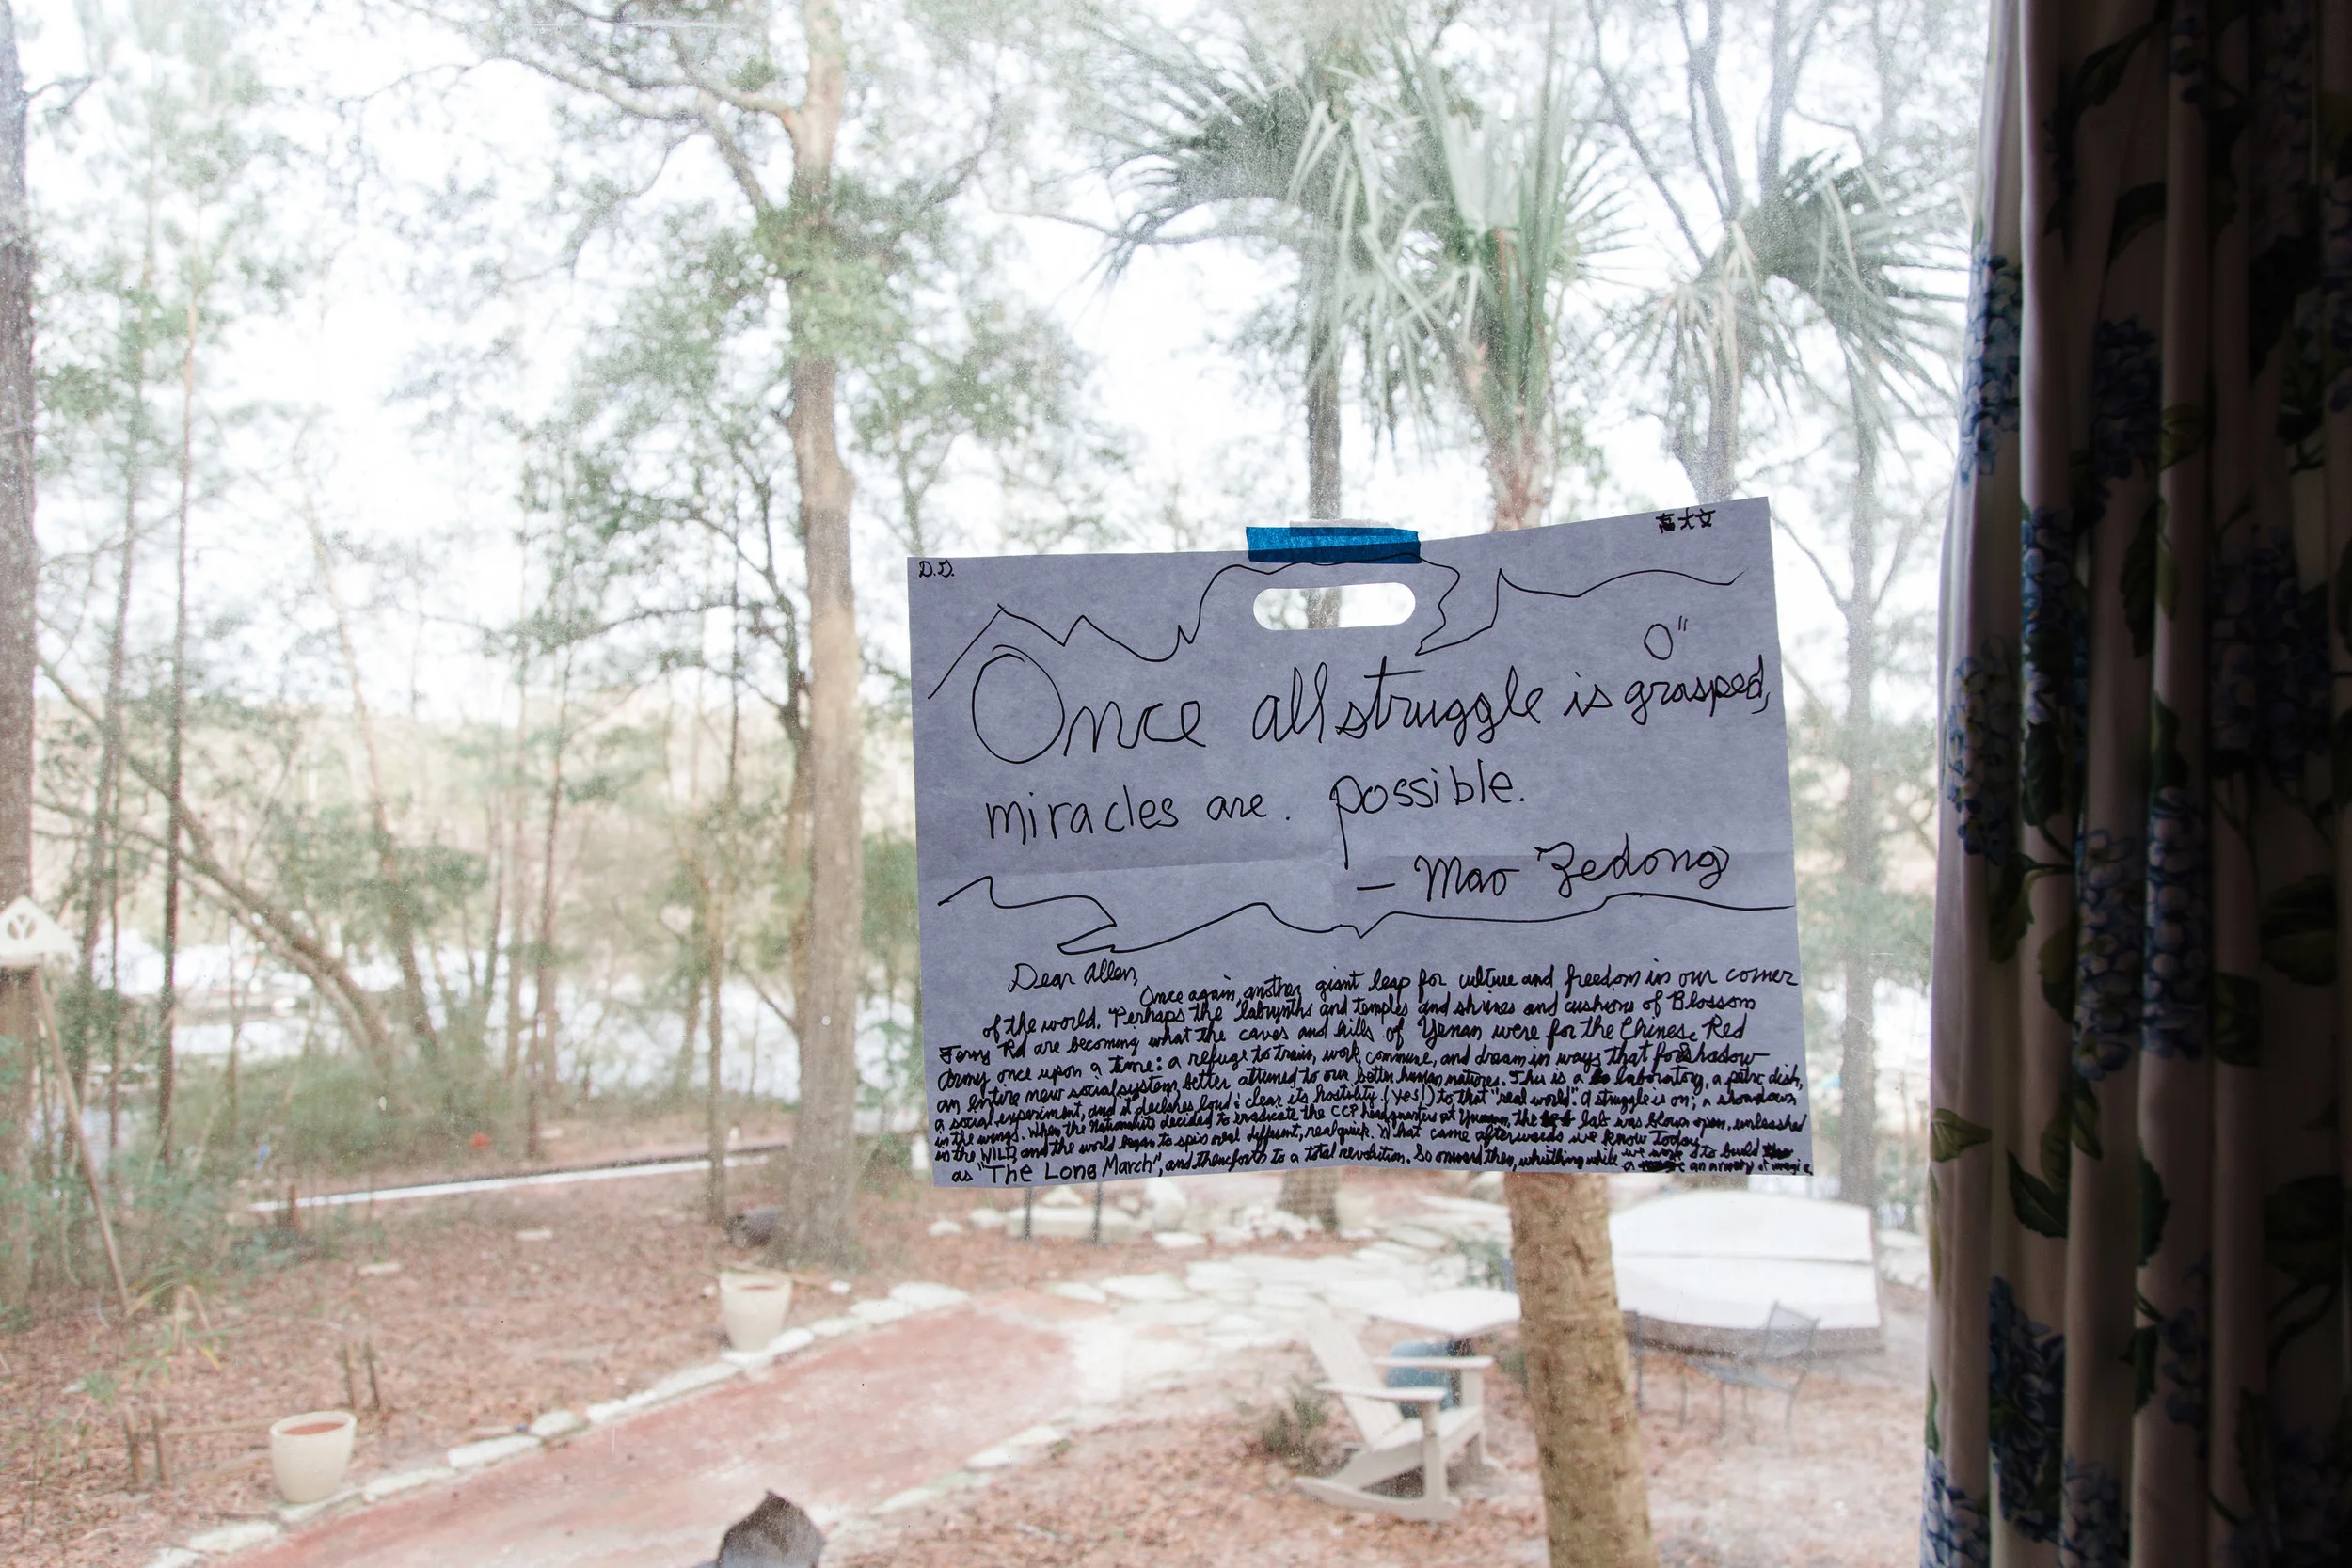 D.D.
高大文
O"
Once all struggle is grasped,
miracles are. possible.
— Mao Zedong
Dear Allen,
Once again, another giant leap for culture and freedom in our corner
of the world. Perhaps the labyrinths and temples and shrines and cushions of Blossom
Ferry Rd are becoming what the caves and hills of Yenan were for the Chinese Red
Army once upon a time: a refuge to train, work, commune, and dream in ways that foreshadow
an entire new social system, better attuned to our better human natures. This is a laboratory, a petri dish,
a social experiment, and it declares loud & clear its hostility (yes!) to that "real world". A struggle is on; a showdown
in the wings. When the Nationalists decided to eradicate the CCP headquarters at the lab was blown open, unleashed
in the WILD, and the world began to spin real different, real quick. What came afterwards we know today
as "The Long March", and thenceforth to a total revolution. So onward then, whistling while we work to build
a an army of magic